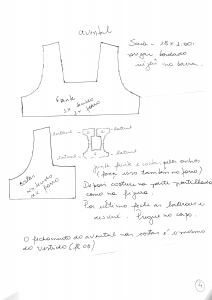 avental
Saia - 28 x 1,00.
pregar bordado
viés na barra.
Frente
1x tecido
1x forro
lateral
lateral
lateral
lateral
costas
2x tecido
2x forro
frente e costas pelos ombros
(faça isso também no forro)
Depois costure na parte pontilhada
como na figura.
Por último feche as laterais e
desvire. Pregue no
O fechamento do avental nas costas é o mesmo
do vestido (fl 03)
4